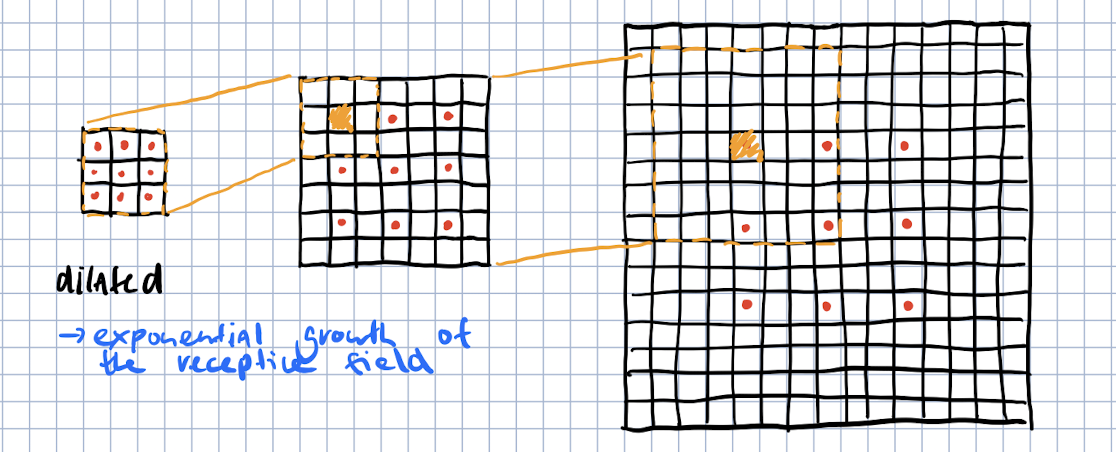 dilated
→ exponential growth of
the receptive field